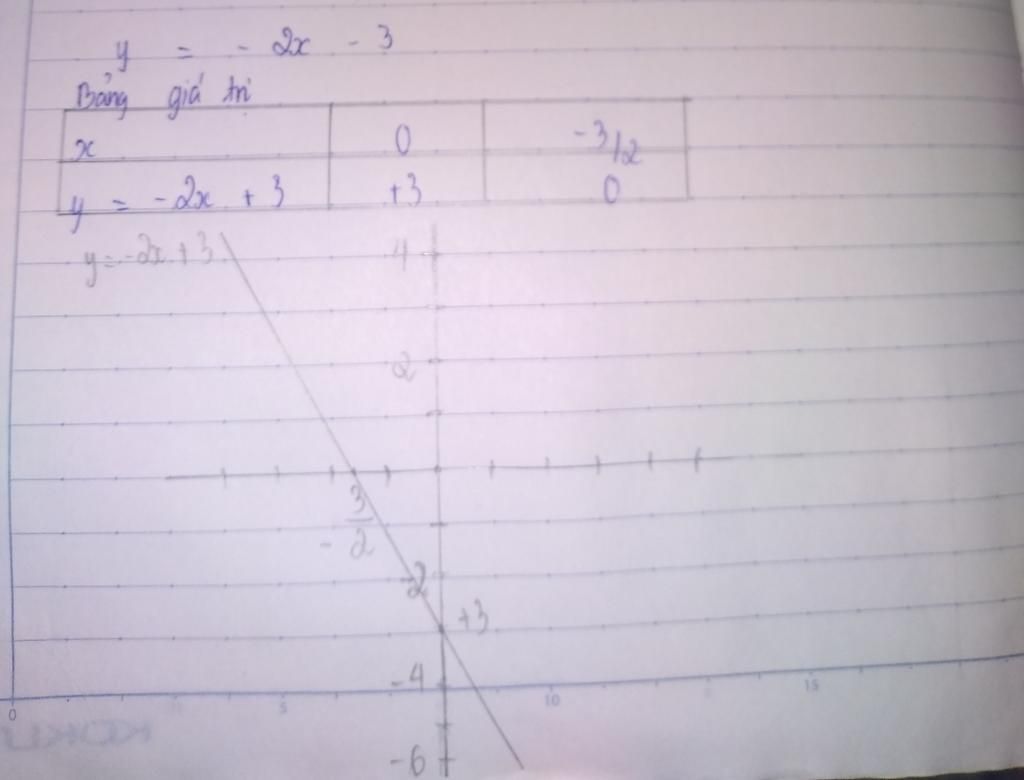 y = - 2x - 3
Bảng giá trị
x 0 -3/2
y = -2x + 3 +3 0
y = -2x + 3
4
2
-3/2
-2
+3
-4
0 5 10 15
-6